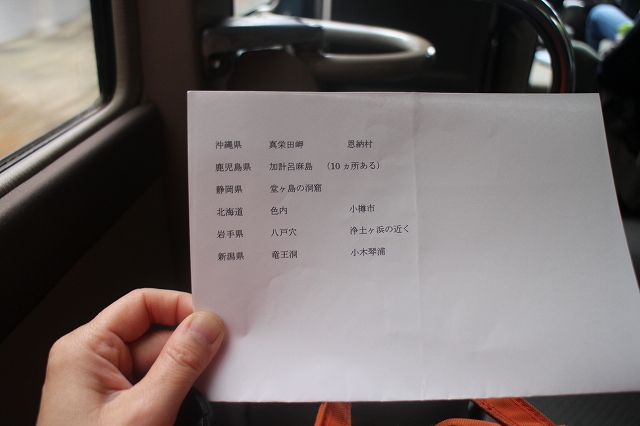 沖縄県 真栄田岬 恩納村
鹿児島県 加計呂麻島 （10ヵ所ある）
静岡県 堂ヶ島の洞窟
北海道 色内 小樽市
岩手県 八戸穴 浄土ヶ浜の近く
新潟県 竜王洞 小木琴浦